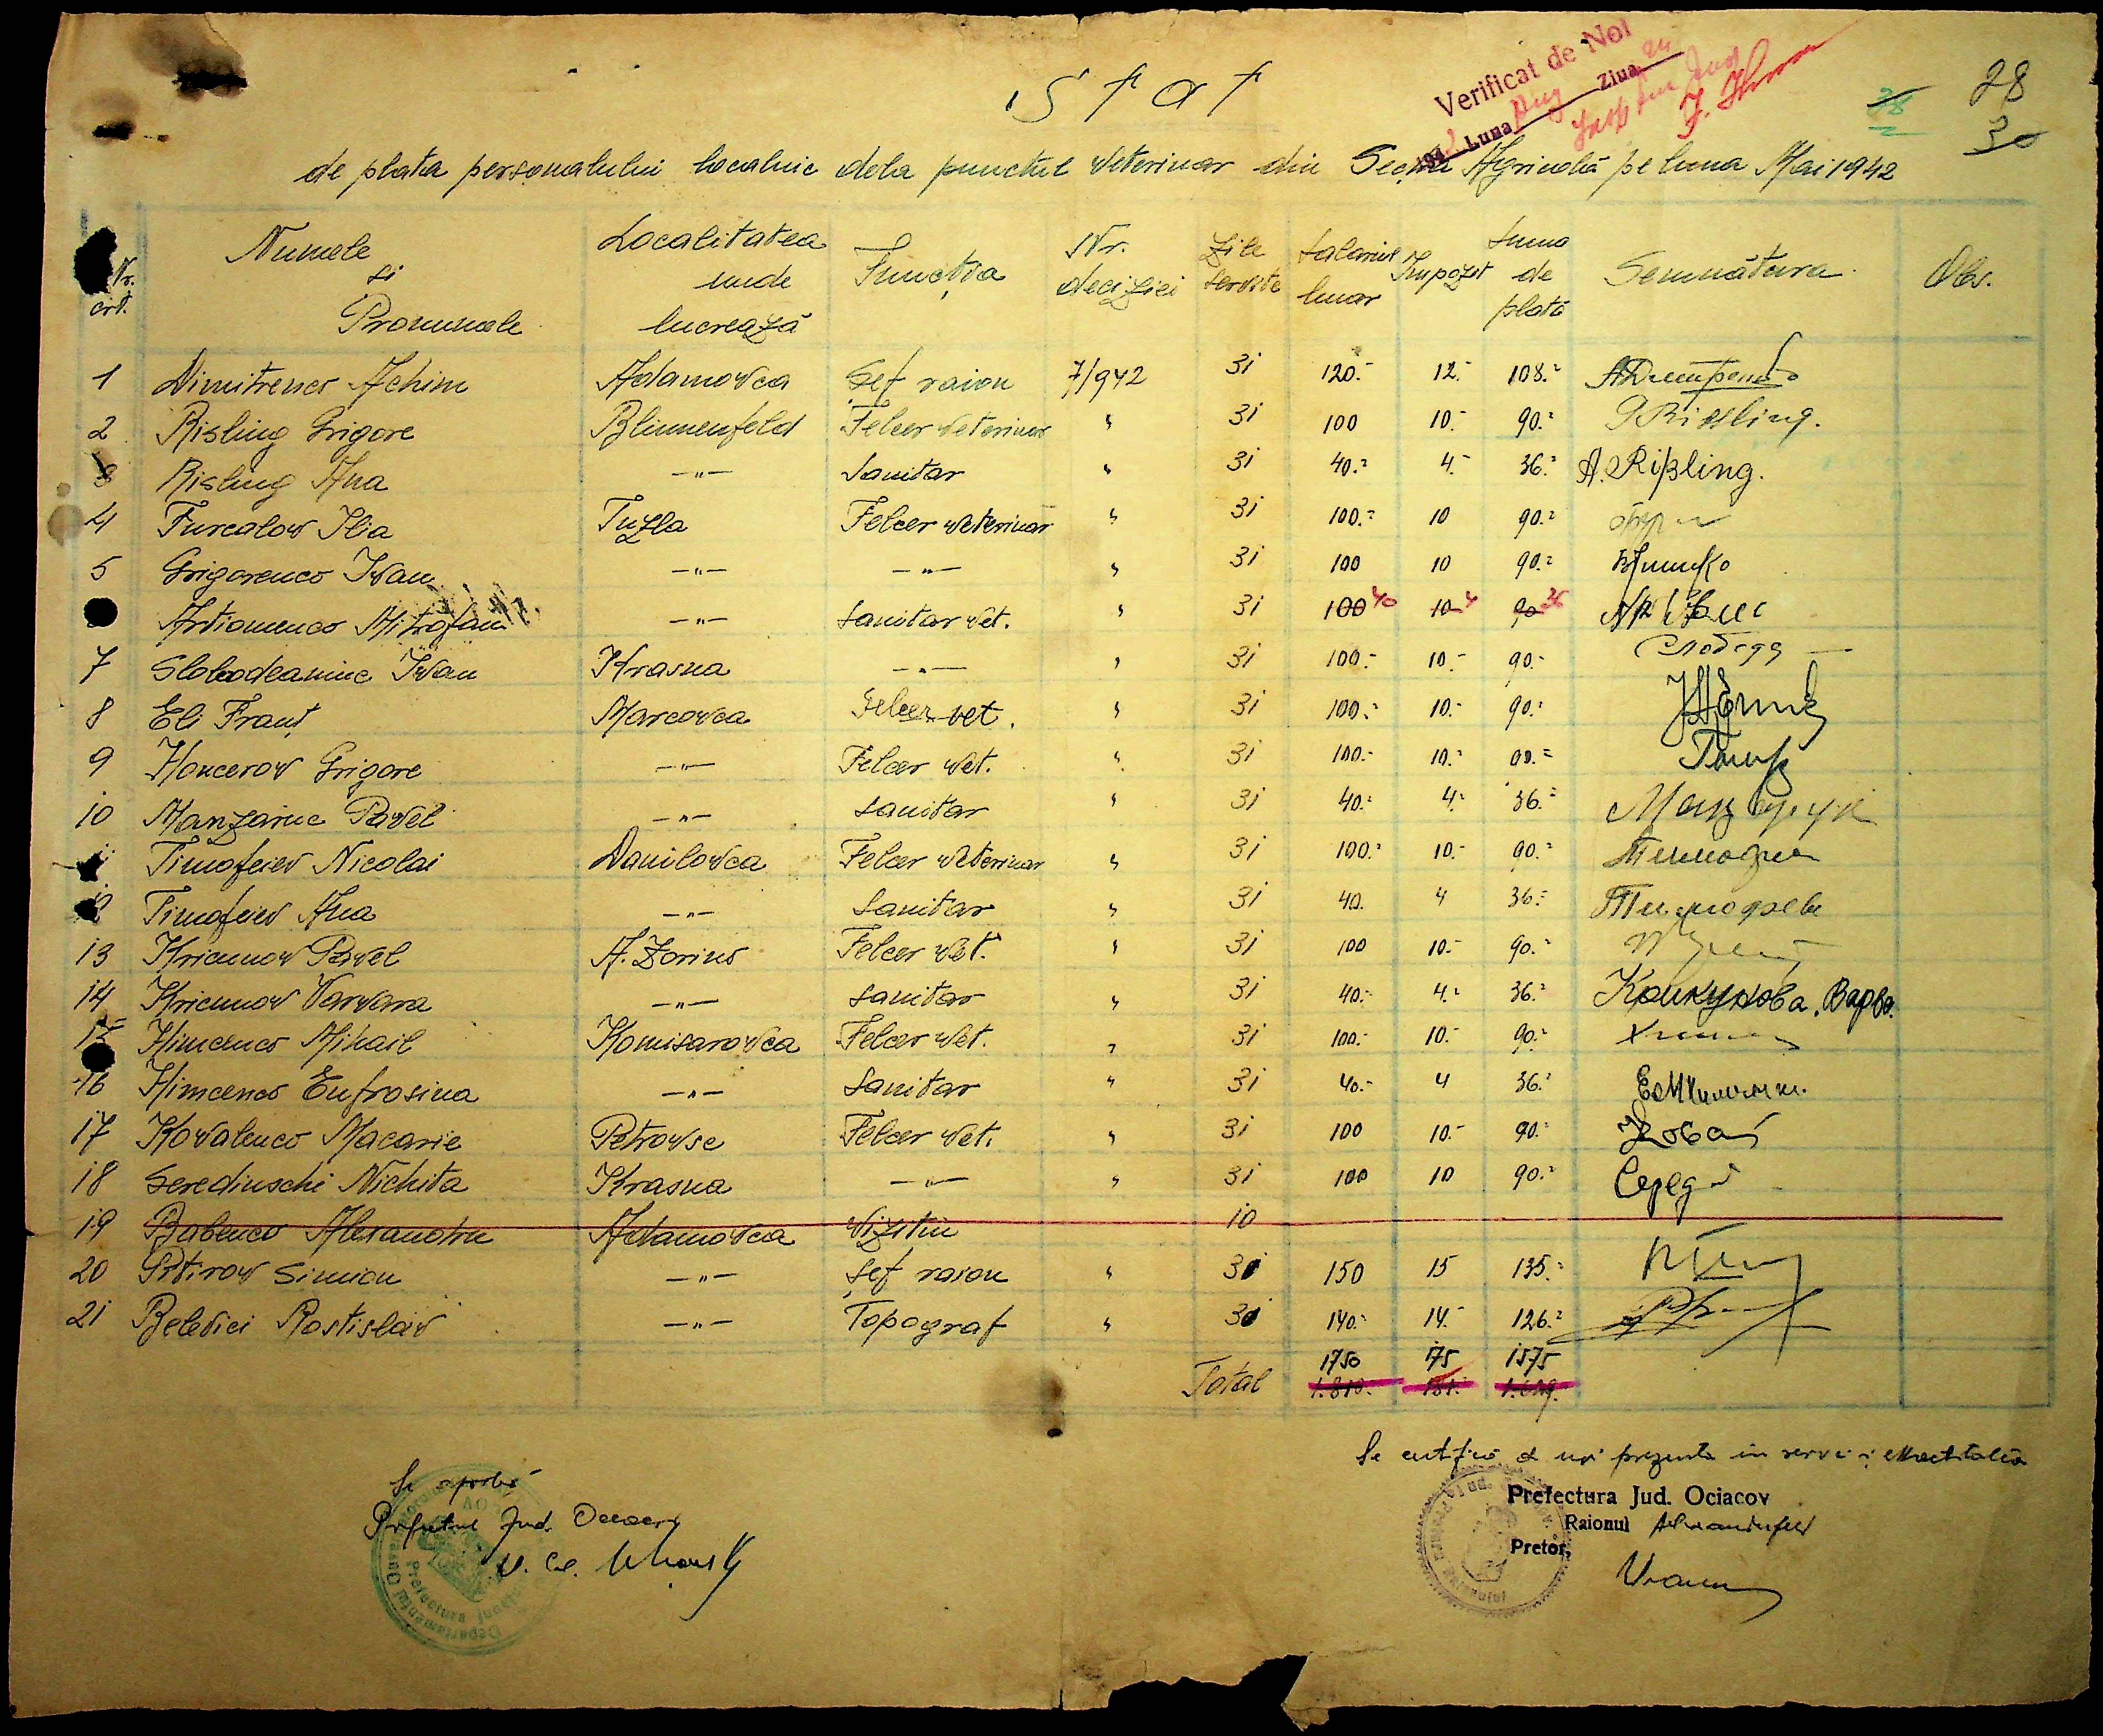 Stat
Verificat de Noi
Luna Ziua
28
30
38
de plata personalului localnic dela punctul veterinar din Secția Agricolă pe luna Mai 1942
Nr. crt. Numele si Pronumele Localitatea unde lucrează Funcția Nr. deciziei Zile servite Salariul lunar Impozit Suma de plată Semnătura Obs.
1 Dimitrenco Achim Adamovca Șef raion 7/942 31 120.- 12.- 108.-
2 Risling Grigore Blumenfeld Felcer veterinar " 31 100 10.- 90.- G Rissling.
3 Risling Ana -"- Sanitar " 31 40.- 4.- 36.- A. Rißling.
4 Furcalov Ilia Tuzla Felcer veterinar " 31 100.- 10 90.-
5 Grigorenco Ivan -"- -"- " 31 100 10 90.-
Artiomenco Mitrofan -"- Sanitar vet. " 31 100 40 10 4 90 36
7 Slobodeaniuc Ivan Krasna -"- " 31 100.- 10.- 90.- Слобода
8 Eli Franț Marcovca Felcer vet. " 31 100.- 10.- 90.-
9 Honcerov Grigore -"- Felcer vet. " 31 100.- 10.- 90.-
10 Manzariuc Pavel -"- Sanitar " 31 40.- 4.- 36.- Манзарук
11 Timofeiev Nicolai Danilovca Felcer veterinar " 31 100.- 10.- 90.-
12 Timofeiev Ana -"- Sanitar " 31 40. 4 36.- Тимофеев
13 Kricunov Pavel A. Zorino Felcer vet. " 31 100 10.- 90.-
14 Kricunov Varvara -"- Sanitar " 31 40.- 4.- 36.- Крикунова. Варва.
15 Himcenco Mihail Komisarovca Felcer vet. " 31 100.- 10.- 90.-
16 Himcenco Eufrosina -"- Sanitar " 31 40.- 4 36.-
17 Kovalenco Macarie Petrovse Felcer vet. " 31 100 10.- 90.- Кова
18 Serediuschi Nichita Krasna -"- " 31 100 10 90.- Серед
19 Babenco Alexandru Adamovca Vizitiu 10
20 Pitirov Simion -"- Șef raion " 31 150 15 135.-
21 Belevici Rostislav -"- Topograf " 31 140.- 14.- 126.-
1750 175 1575
Total 1.810.- 181.- 1.629.-
Se aprobă
Prefectul Jud.
Se certifică
Prefectura Jud. Ociacov
Raionul
Pretor,